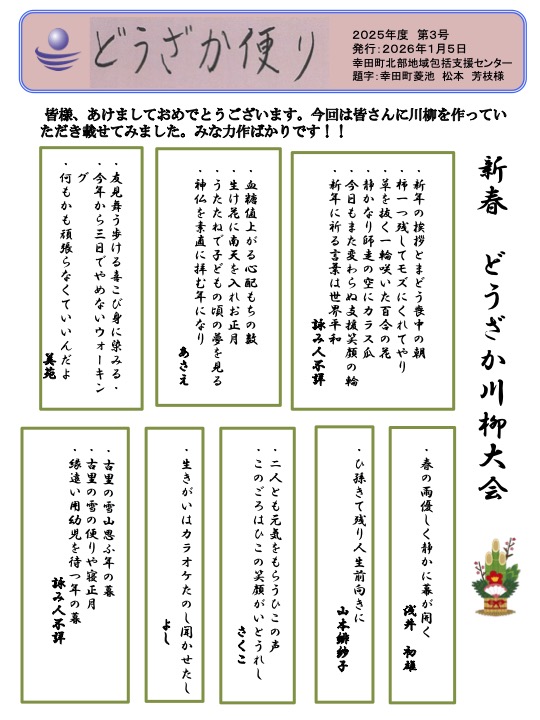 どうざか便り
2025年度 第3号
発行:2026年1月5日
幸田町北部地域包括支援センター
題字:幸田町菱池 松本 芳枝様
皆様、あけましておめでとうございます。今回は皆さんに川柳を作ってい
ただき載せてみました。みな力作ばかりです!!
新春 どうざか川柳大会
・新年の挨拶とまどう喪中の朝
・柿一つ残してモズにくれてやり
・草を抜く一輪咲いた百合の花
・静かなり師走の空にカラス瓜
・今日もまた変わらぬ支援笑顔の輪
・新年に祈る言葉は世界平和
詠み人不詳
・血糖値上がる心配もちの数
・生け花に南天を入れお正月
・うたたねで子どもの頃の夢を見る
・神仏を素直に拝む年になり
あさえ
・友見舞う歩ける喜こび身に染みる・
・今年から三日でやめないウォーキン
グ
・何もかも頑張らなくていいんだよ
美苑
・春の雨優しく静かに幕が開く
浅井 初雄
・ひ孫きて残り人生前向きに
山本緋紗子
・二人とも元気をもらうひこの声
・このごろはひこの笑顔がいとうれし
さくこ
・生きがいはカラオケたのし聞かせたし
よし
・古里の雪山思ふ年の暮
・古里の雪の便りや寝正月
・縁遠い用幼児を待つ年の暮
詠み人不詳